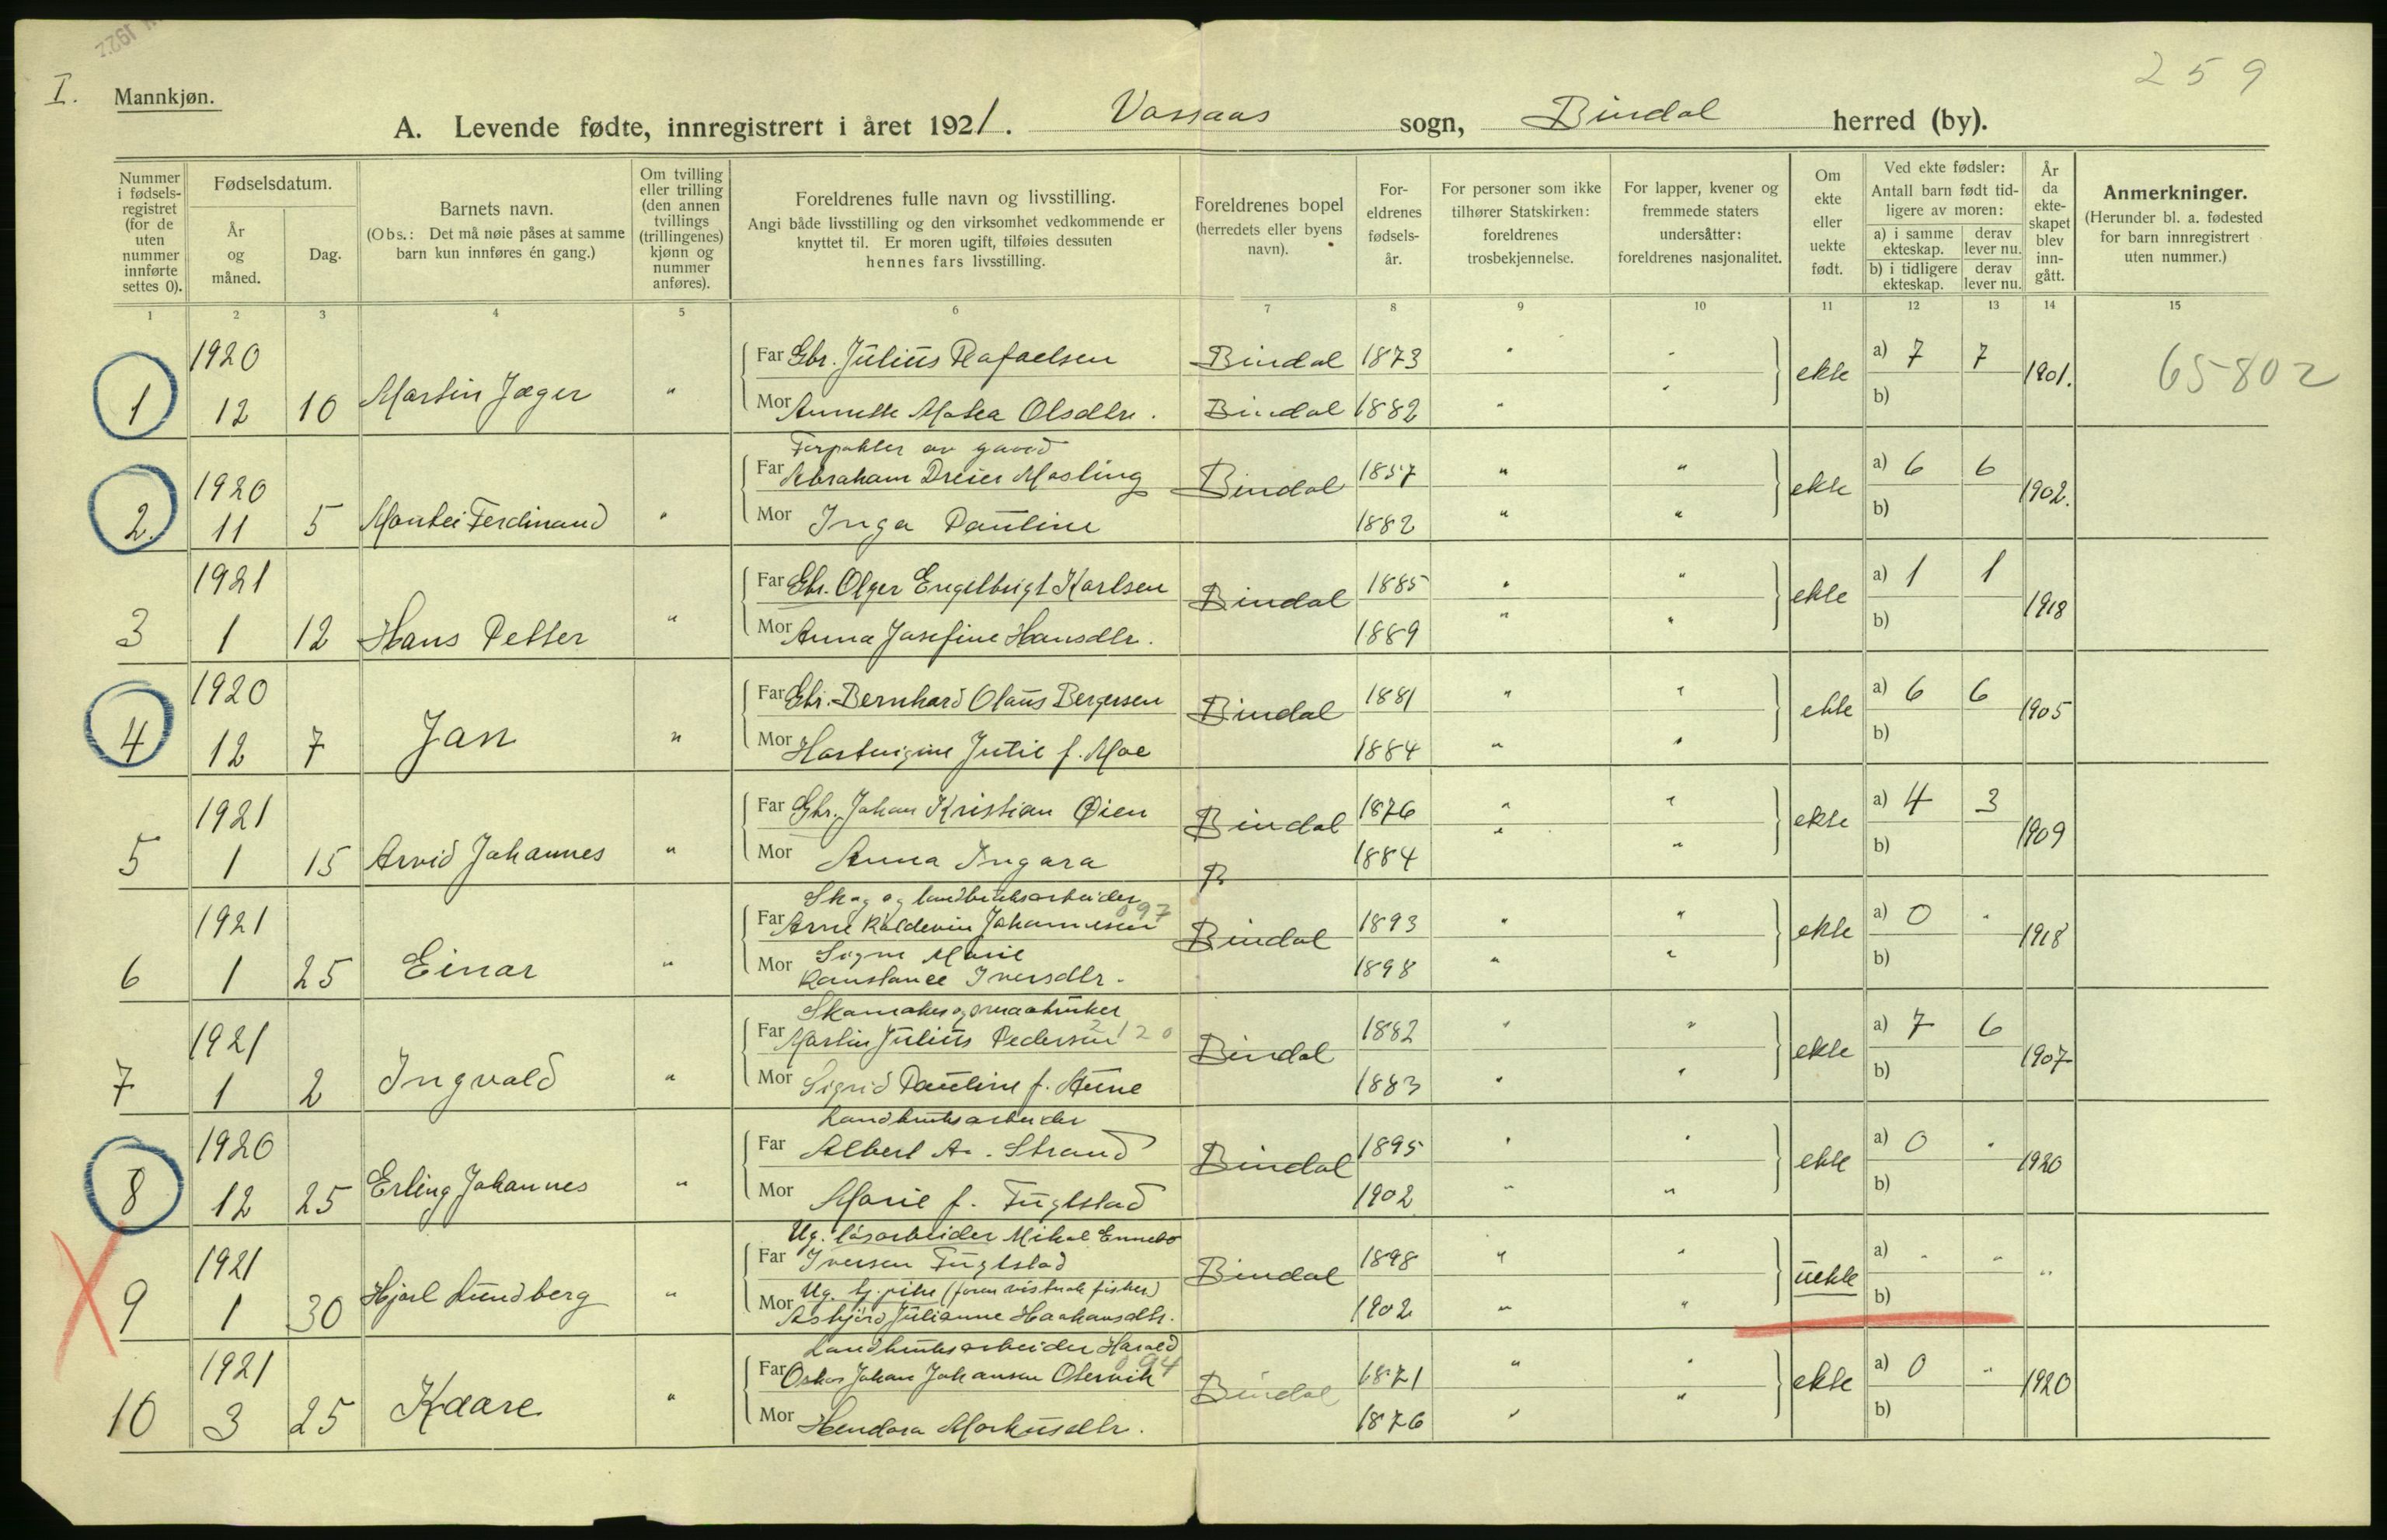 1922
I.
Mannkjøn.
259
A. Levende fødte, innregistrert i året 1921. Vassaas sogn, Bindal herred (by).
Nummer i fødsels-registret (for de uten nummer innførte settes 0).
Fødselsdatum.
År og måned.
Dag.
Barnets navn.
(Obs.: Det må nøie påses at samme barn kun innføres én gang.)
Om tvilling eller trilling (den annen tvillings (trillingenes) kjønn og nummer anføres).
Foreldrenes fulle navn og livsstilling.
Angi både livsstilling og den virksomhet vedkommende er knyttet til. Er moren ugift, tilføies dessuten hennes fars livsstilling.
Foreldrenes bopel (herredets eller byens navn).
For-eldrenes fødsels-år.
For personer som ikke tilhører Statskirken: foreldrenes trosbekjennelse.
For lapper, kvener og fremmede staters undersåtter: foreldrenes nasjonalitet.
Om ekte eller uekte født.
Ved ekte fødsler:
Antall barn født tid-ligere av moren:
a) i samme ekteskap.
derav lever nu.
b) i tidligere ekteskap.
derav lever nu.
År da ekte-skapet blev inn-gått.
Anmerkninger.
(Herunder bl. a. fødested for barn innregistrert uten nummer.)
1 2 3 4 5 6 7 8 9 10 11 12 13 14 15
1 1920 12 10 Martin Jæger "
Far Gbr. Julius Rafaelsen Bindal 1873 " "
Mor Annette Matea Olsdtr. Bindal 1882 " "
ekte a) 7 7 b) 1901. 65802
2. 1920 11 5 Mantei Ferdinand "
Forpakter av gaard
Far Abraham Dreier Masling Bindal 1857 " "
Mor Inga Pauline 1882 " "
ekte a) 6 6 b) 1902.
3 1921 1 12 Hans Petter "
Far Gbr. Olger Engelbrigt Karlsen Bindal 1885 " "
Mor Anna Josefine Hansdtr. 1889 " "
ekte a) 1 1 b) 1918
4 1920 12 7 Jan "
Far Gbr. Bernhard Olaus Bergersen Bindal 1881 " "
Mor Hartvigine Jutie f. Moe 1884 " "
ekte a) 6 6 b) 1905
5 1921 1 15 Arvid Johannes "
Far Gbr. Johan Kristian Øien Bindal 1876 " "
Mor Anna Ingara B 1884 " "
ekte a) 4 3 b) 1909
6 1921 1 25 Einar "
Skog og landbruksarbeider
097
Far Arne Kaldevin Johannesen Bindal 1893 " "
Signe Marie
Mor Konstance Iversdtr. 1898 " "
ekte a) 0 " b) 1918
7 1921 1 2 Ingvald "
Skomaker og smaabruker
Far Martin Julius Pedersen 2120 Bindal 1882 " "
Mor Sigrid Pauline f. Aune 1883 " "
ekte a) 7 6 b) 1907
8 1920 12 25 Erling Johannes "
Landbruksarbeider
Far Albert A. Strand Bindal 1895 " "
Mor Marie f. Fuglstad 1902 " "
ekte a) 0 " b) 1920
9 1921 1 30 Hjarl Lundberg "
Ug. løsarbeider Mikal
Far Iversen Fuglstad Bindal 1898 " "
Ug. tj. pike
Mor Asbjørd Julianne Haakansdtr. 1902 " "
uekte a) " " b) "
10 1921 3 25 Kaare "
Landbruksarbeider Harald
094
Far Oskar Johan Johansen Otervik Bindal 1871 " "
Mor Hendora Markusdtr. 1876 " "
ekte a) 0 " b) 1920